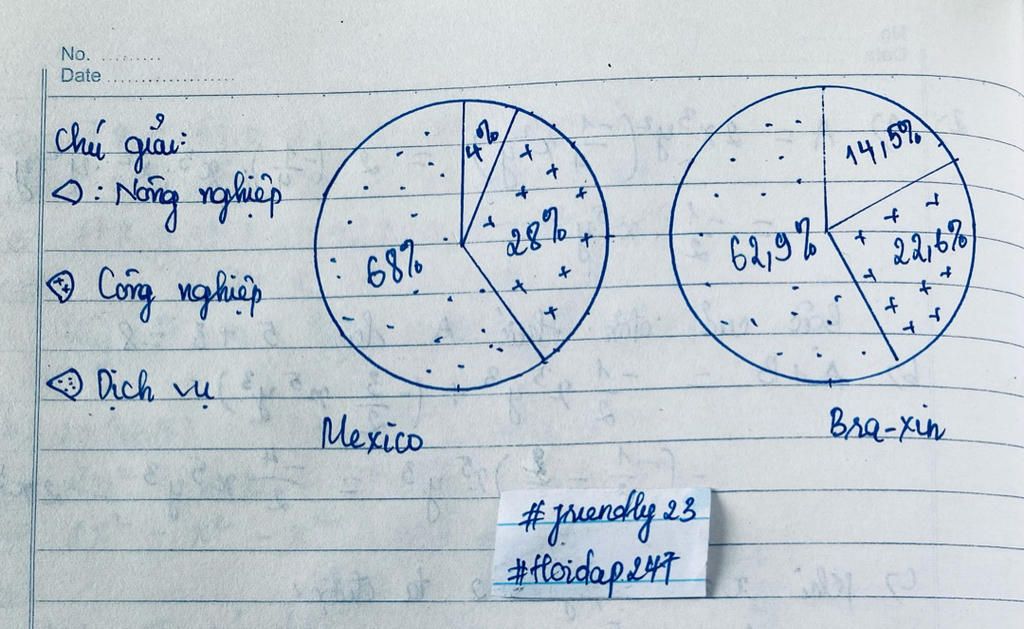 No. ..........
Date ......................
Chú giải:
: Nông nghiệp
Công nghiệp
Dịch vụ
4%
28%
68%
Mexico
14,5%
22,6%
62,9%
Bra-xin
#friendly23
#Hoidap247